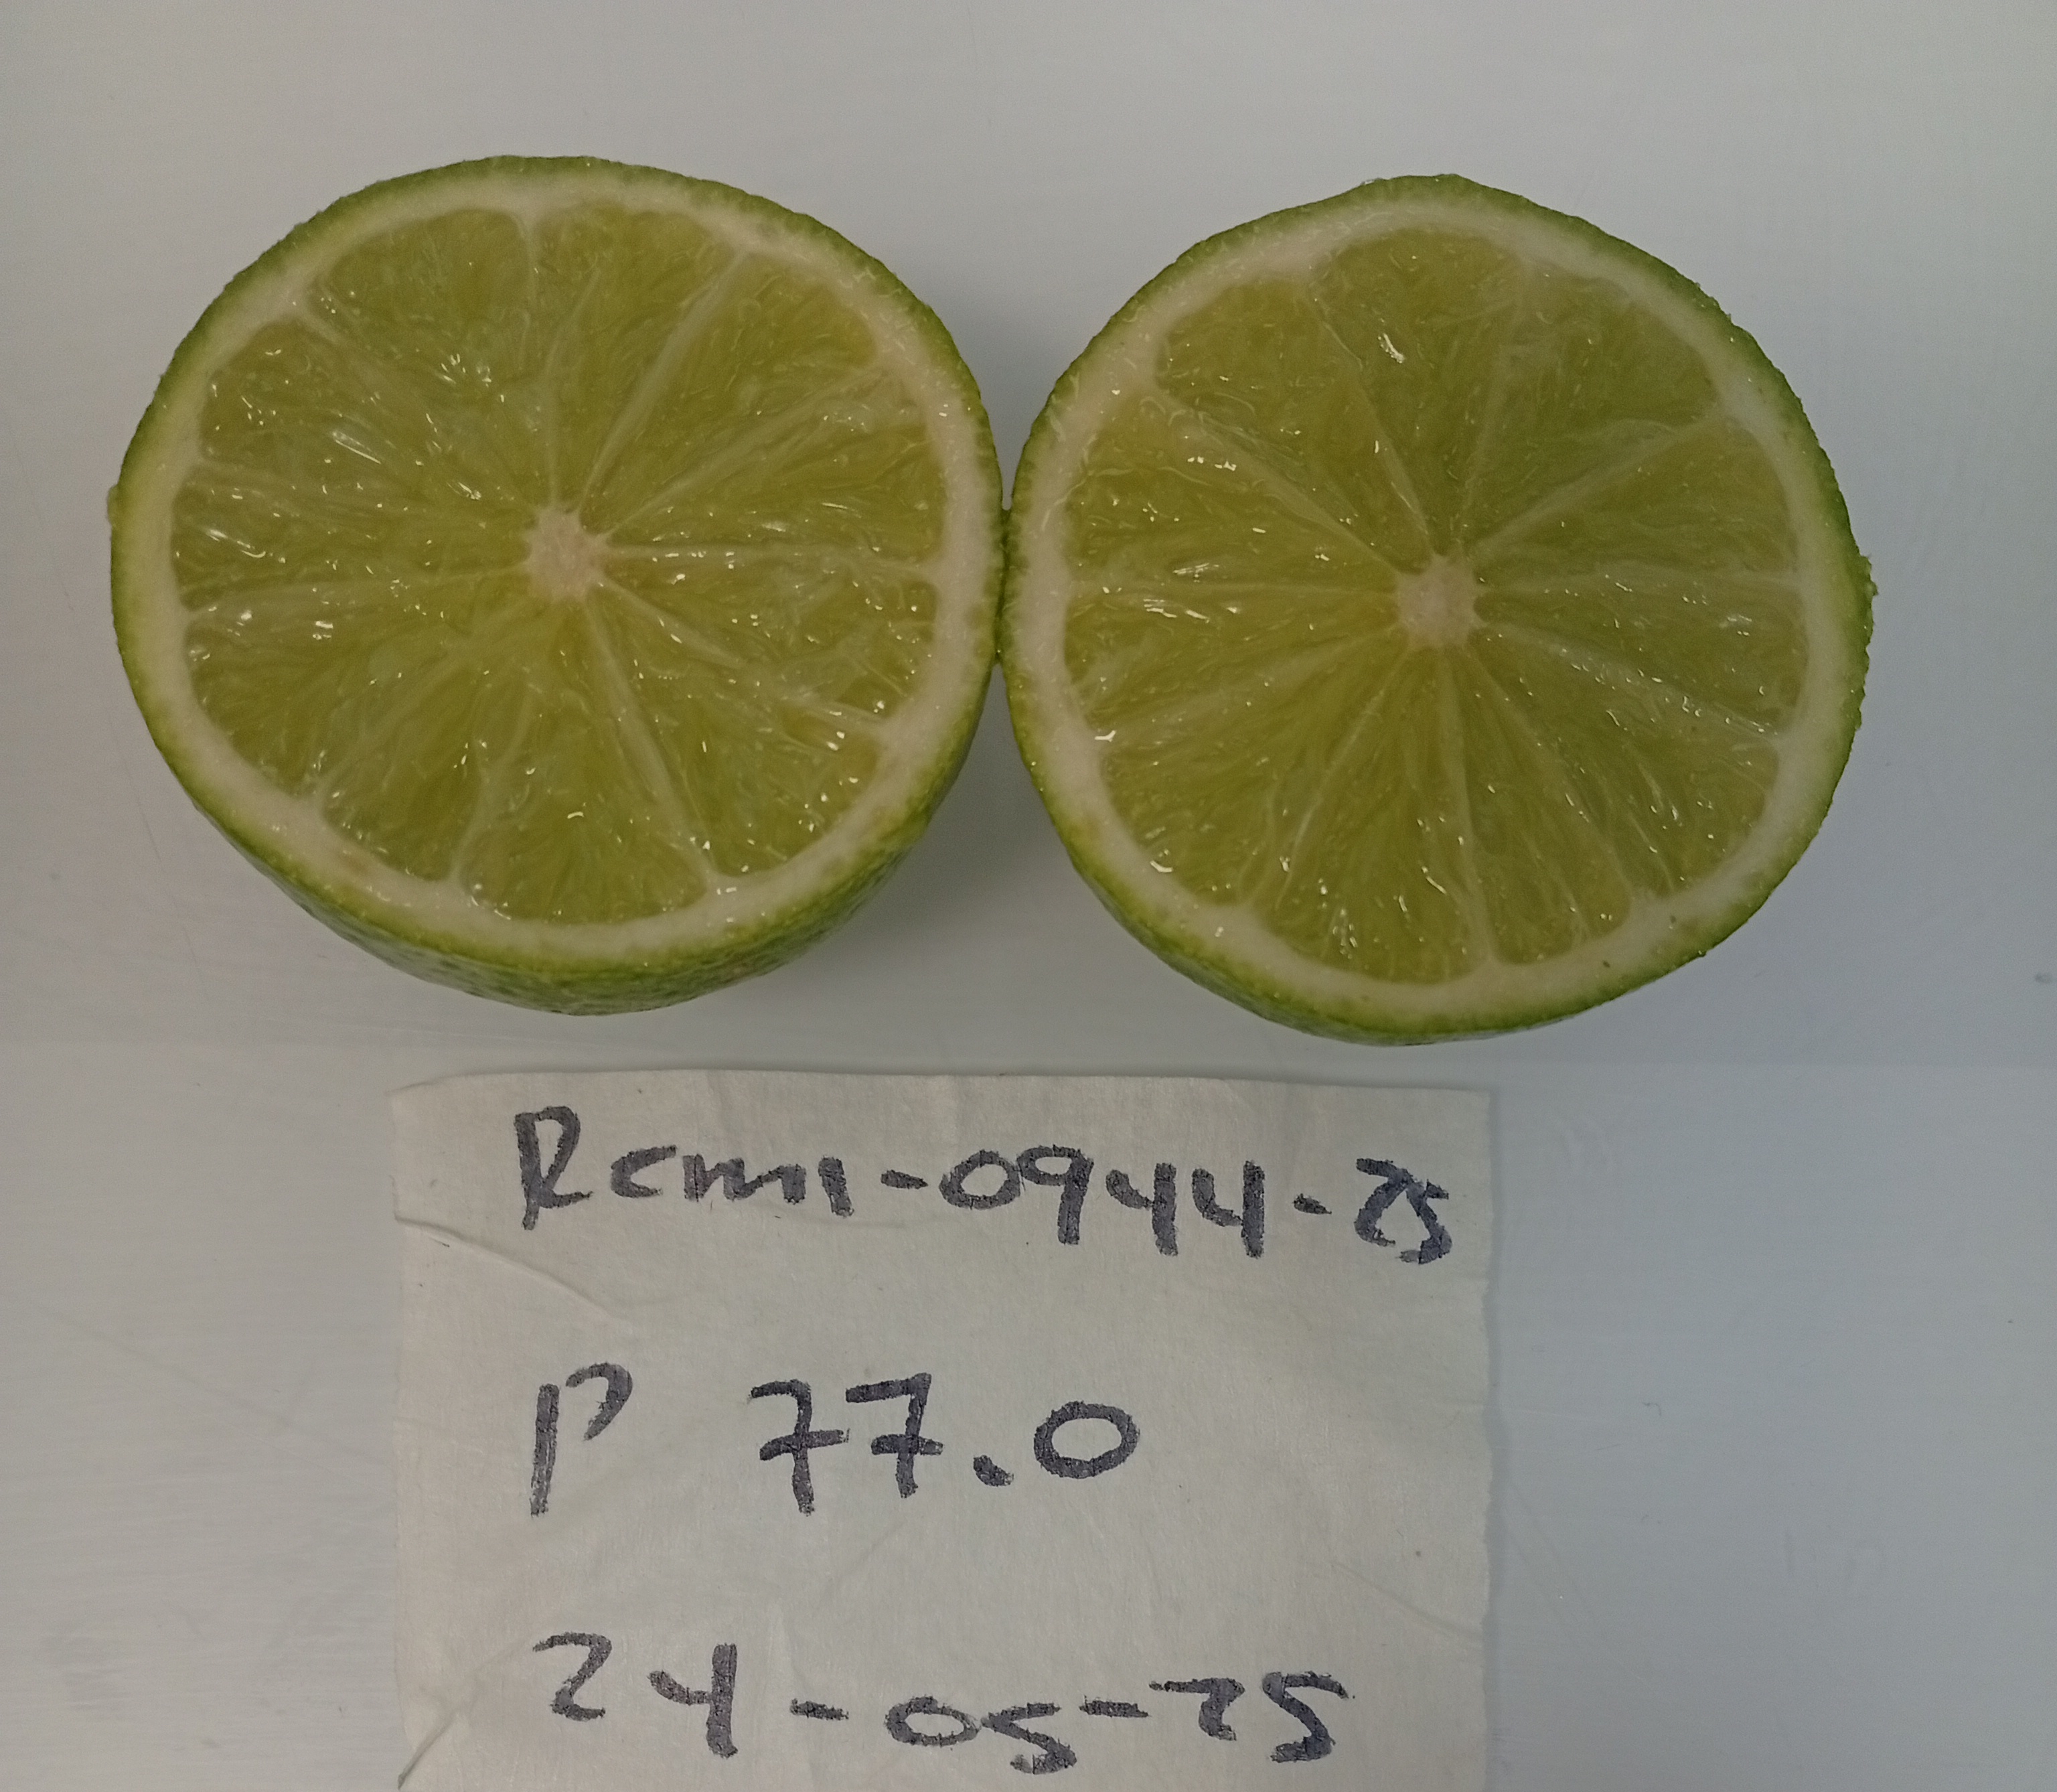 Rcm1-0944-25
P 77.0
24-05-25